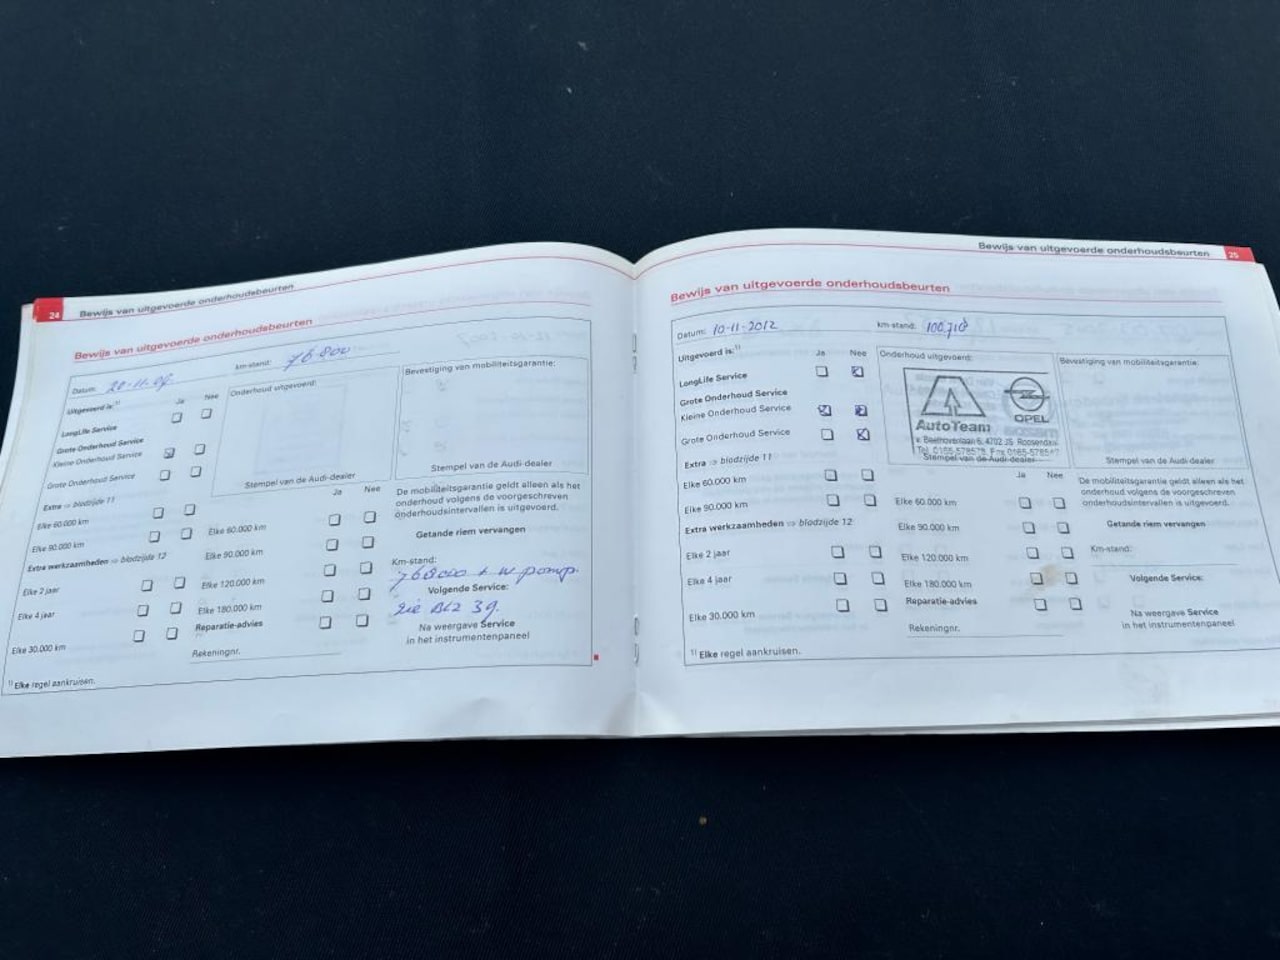 24 Bewijs van uitgevoerde onderhoudsbeurten
Bewijs van uitgevoerde onderhoudsbeurten
Datum:
km-stand: 76800
Uitgevoerd is:¹⁾
Ja Nee
LongLife Service
Grote Onderhoud Service
Kleine Onderhoud Service
Grote Onderhoud Service
Extra ⇒ blodzijde 11
Elke 60.000 km
Elke 90.000 km
Extra werkzaamheden ⇒ blodzijde 12
Elke 2 jaar
Elke 4 jaar
Elke 30.000 km
Onderhoud uitgevoerd:
Stempel van de Audi-dealer
Ja Nee
Elke 60.000 km
Elke 90.000 km
Elke 120.000 km
Elke 180.000 km
Reparatie-advies
Rekeningnr.
Bevestiging van mobiliteitsgarantie:
Stempel van de Audi-dealer
De mobiliteitsgarantie geldt alleen als het
onderhoud volgens de voorgeschreven
onderhoudsintervallen is uitgevoerd.
Getande riem vervangen
Km-stand:
76800 + w pomp.
Volgende Service:
zie Blz 39.
Na weergave Service
in het instrumentenpaneel
¹⁾ Elke regel aankruisen.
Bewijs van uitgevoerde onderhoudsbeurten 25
Bewijs van uitgevoerde onderhoudsbeurten
Datum: 10-11-2012
km-stand: 100.718
Uitgevoerd is:¹⁾
Ja Nee
LongLife Service
Grote Onderhoud Service
Kleine Onderhoud Service
Grote Onderhoud Service
Extra ⇒ blodzijde 11
Elke 60.000 km
Elke 90.000 km
Extra werkzaamheden ⇒ blodzijde 12
Elke 2 jaar
Elke 4 jaar
Elke 30.000 km
Onderhoud uitgevoerd:
AutoTeam
OPEL
v. Beethovenlaan 6, 4702 JS Roosendaal
Tel. 0165-578578, Fax
Stempel van de Audi-dealer
Ja Nee
Elke 60.000 km
Elke 90.000 km
Elke 120.000 km
Elke 180.000 km
Reparatie-advies
Rekeningnr.
Bevestiging van mobiliteitsgarantie:
Stempel van de Audi-dealer
De mobiliteitsgarantie geldt alleen als het
onderhoud volgens de voorgeschreven
onderhoudsintervallen is uitgevoerd.
Getande riem vervangen
Km-stand:
Volgende Service:
Na weergave Service
in het instrumentenpaneel
¹⁾ Elke regel aankruisen.